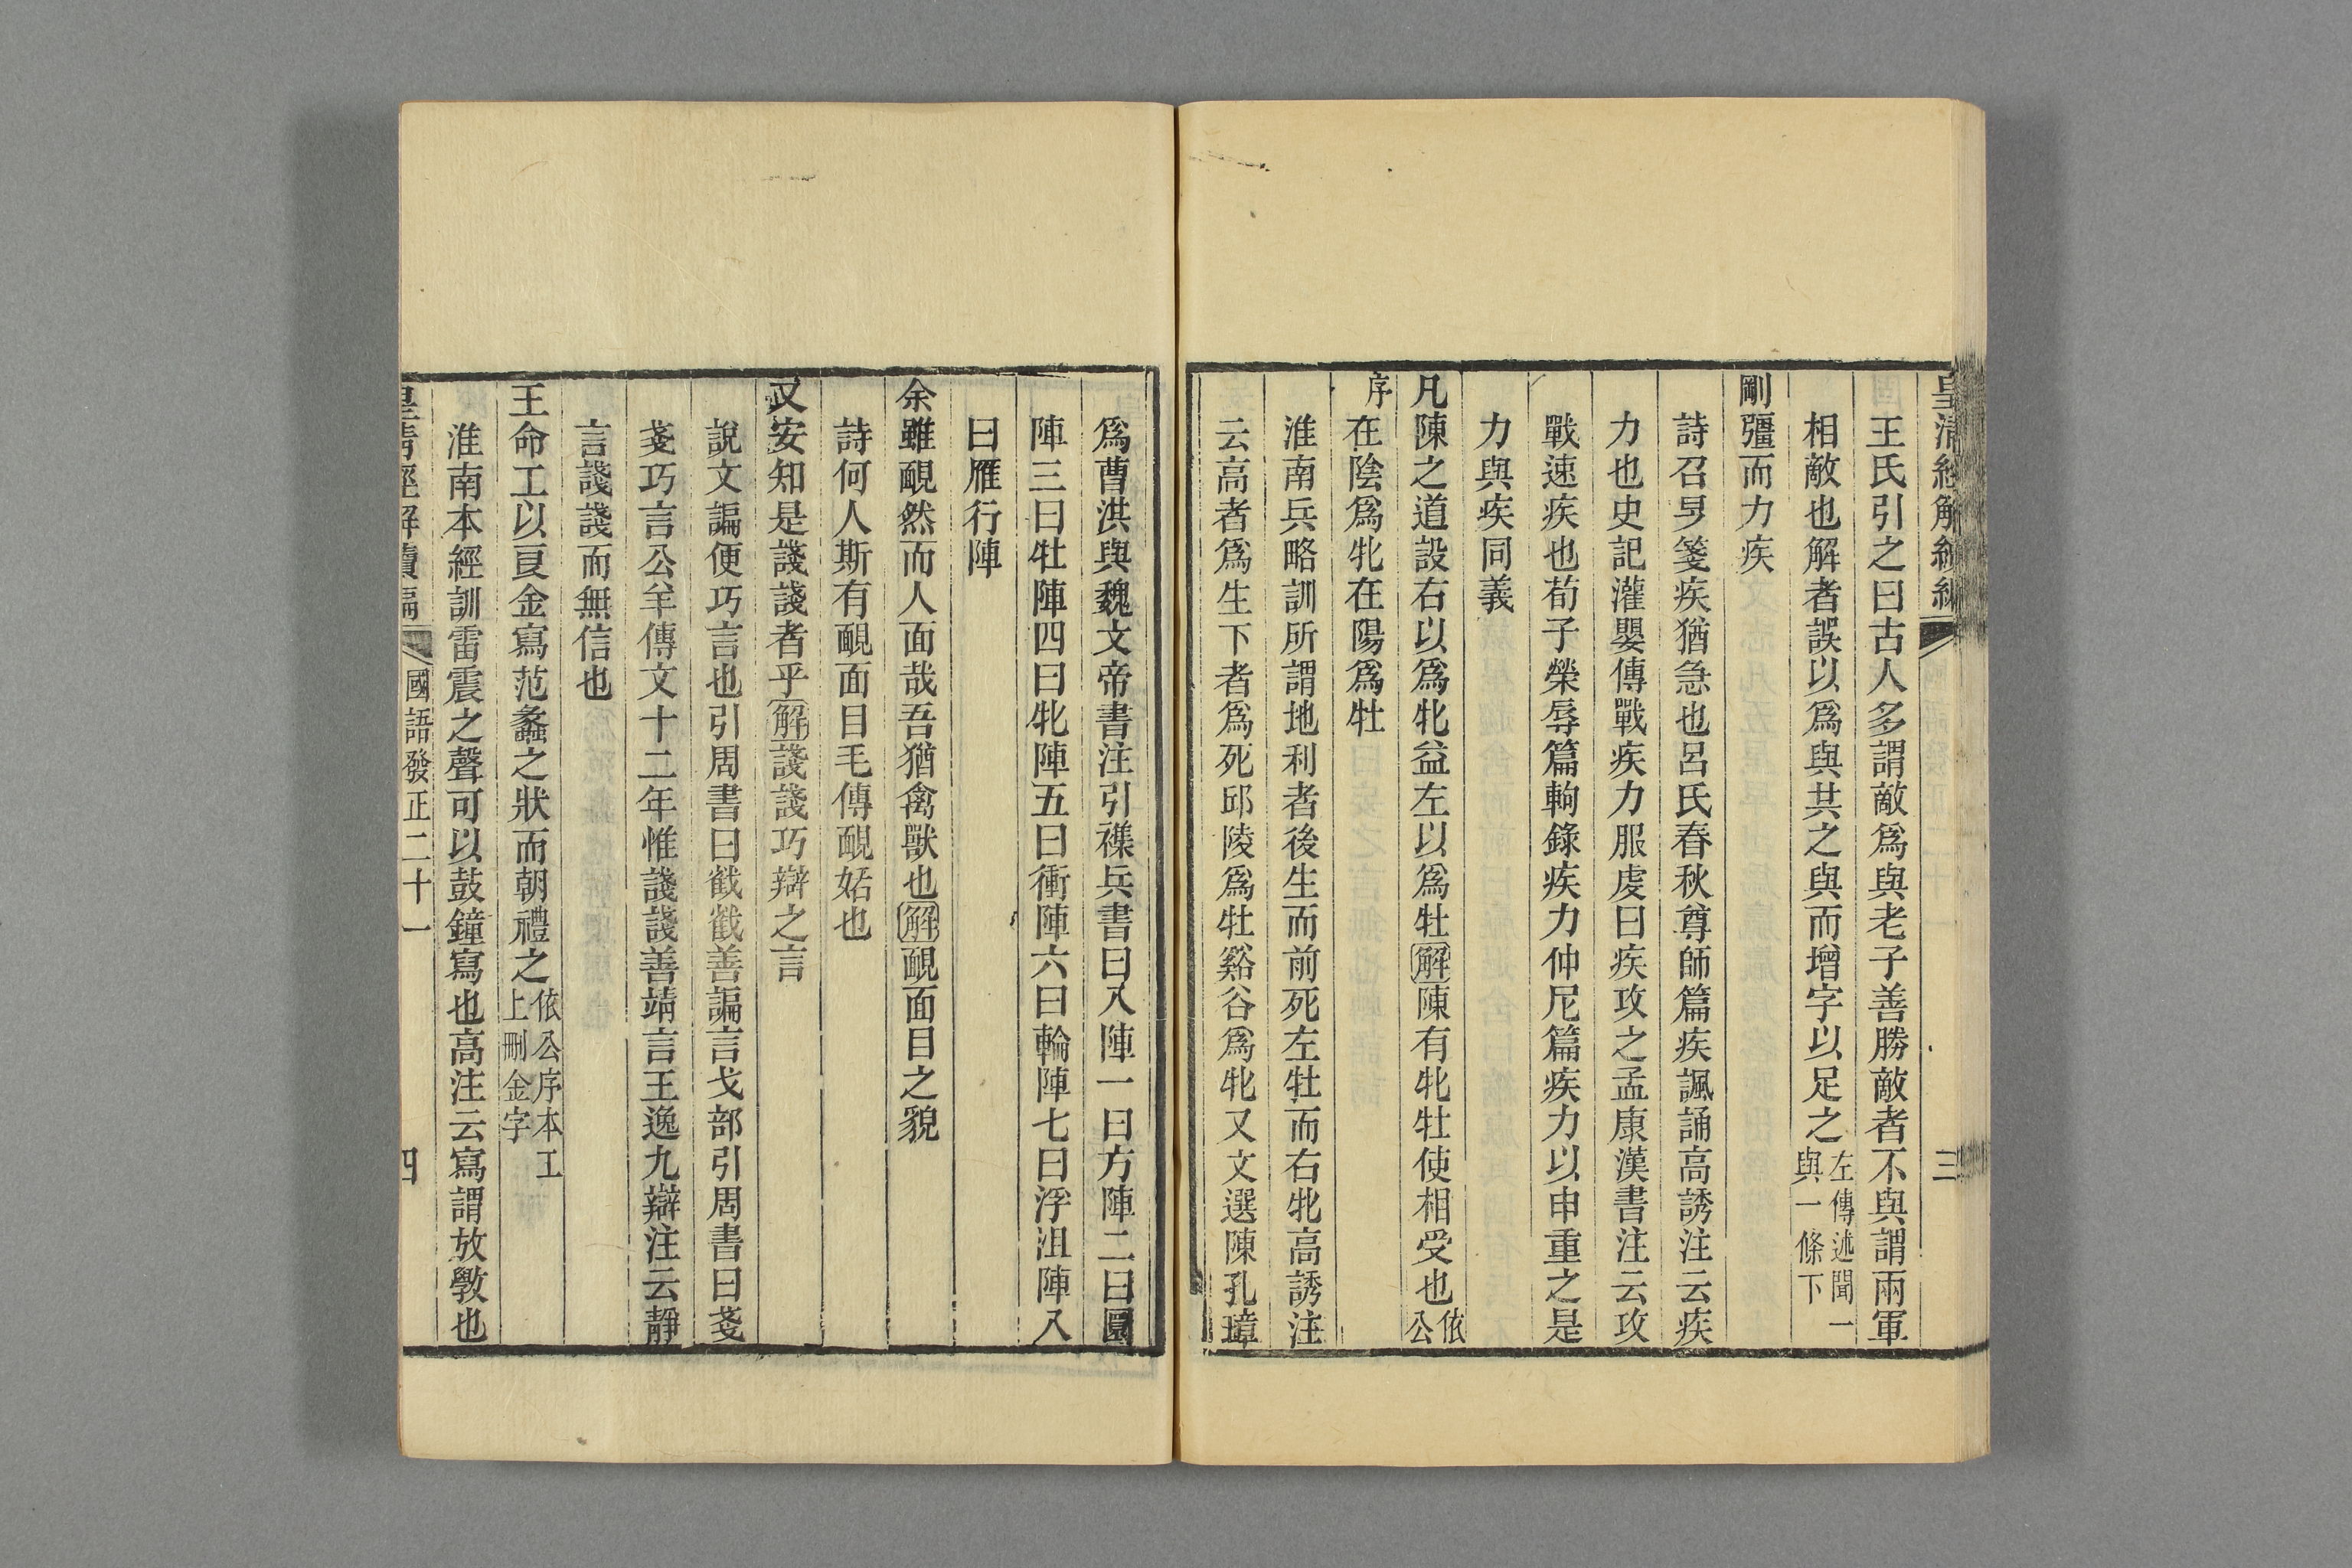 皇清經解續編
三
王氏引之曰古人多謂敵爲與老子善勝敵者不與謂兩軍
相敵也解者誤以爲與共之與而增字以足之左傳述聞一與一條下
剛彊而力疾
詩召旻箋疾猶急也呂氏春秋尊師篇疾諷誦高誘注云疾
力也史記灌嬰傳戰疾力服虔曰疾攻之孟康漢書注云攻
戰速疾也荀子榮辱篇軥錄疾力仲尼篇疾力以申重之是
力與疾同義
凡陳之道設右以爲牝益左以爲牡解陳有牝牡使相受也依公
序在陰爲牝在陽爲牡
淮南兵略訓所謂地利者後生而前死左牡而右牝高誘注
云高者爲生下者爲死邱陵爲牡谿谷爲牝又文選陳孔璋
爲曹洪與魏文帝書注引襍兵書曰八陣一曰方陣二曰圓
陣三曰牡陣四曰牝陣五曰衝陣六曰輪陣七曰浮沮陣八
曰雁行陣
余雖靦然而人面哉吾猶禽獸也解靦面目之貌
詩何人斯有靦面目毛傳靦姡也
又安知是諓諓者乎解諓諓巧辯之言
說文諞便巧言也引周書曰戩戩善諞言戈部引周書曰戔
戔巧言公羊傳文十二年惟諓諓善竫言王逸九辯注云靜
言諓諓而無信也
王命工以良金寫范蠡之狀而朝禮之依公序本工上刪金字
淮南本經訓雷震之聲可以鼓鐘寫也高注云寫謂放斆也
皇清經解續編
國語發正二十一
四